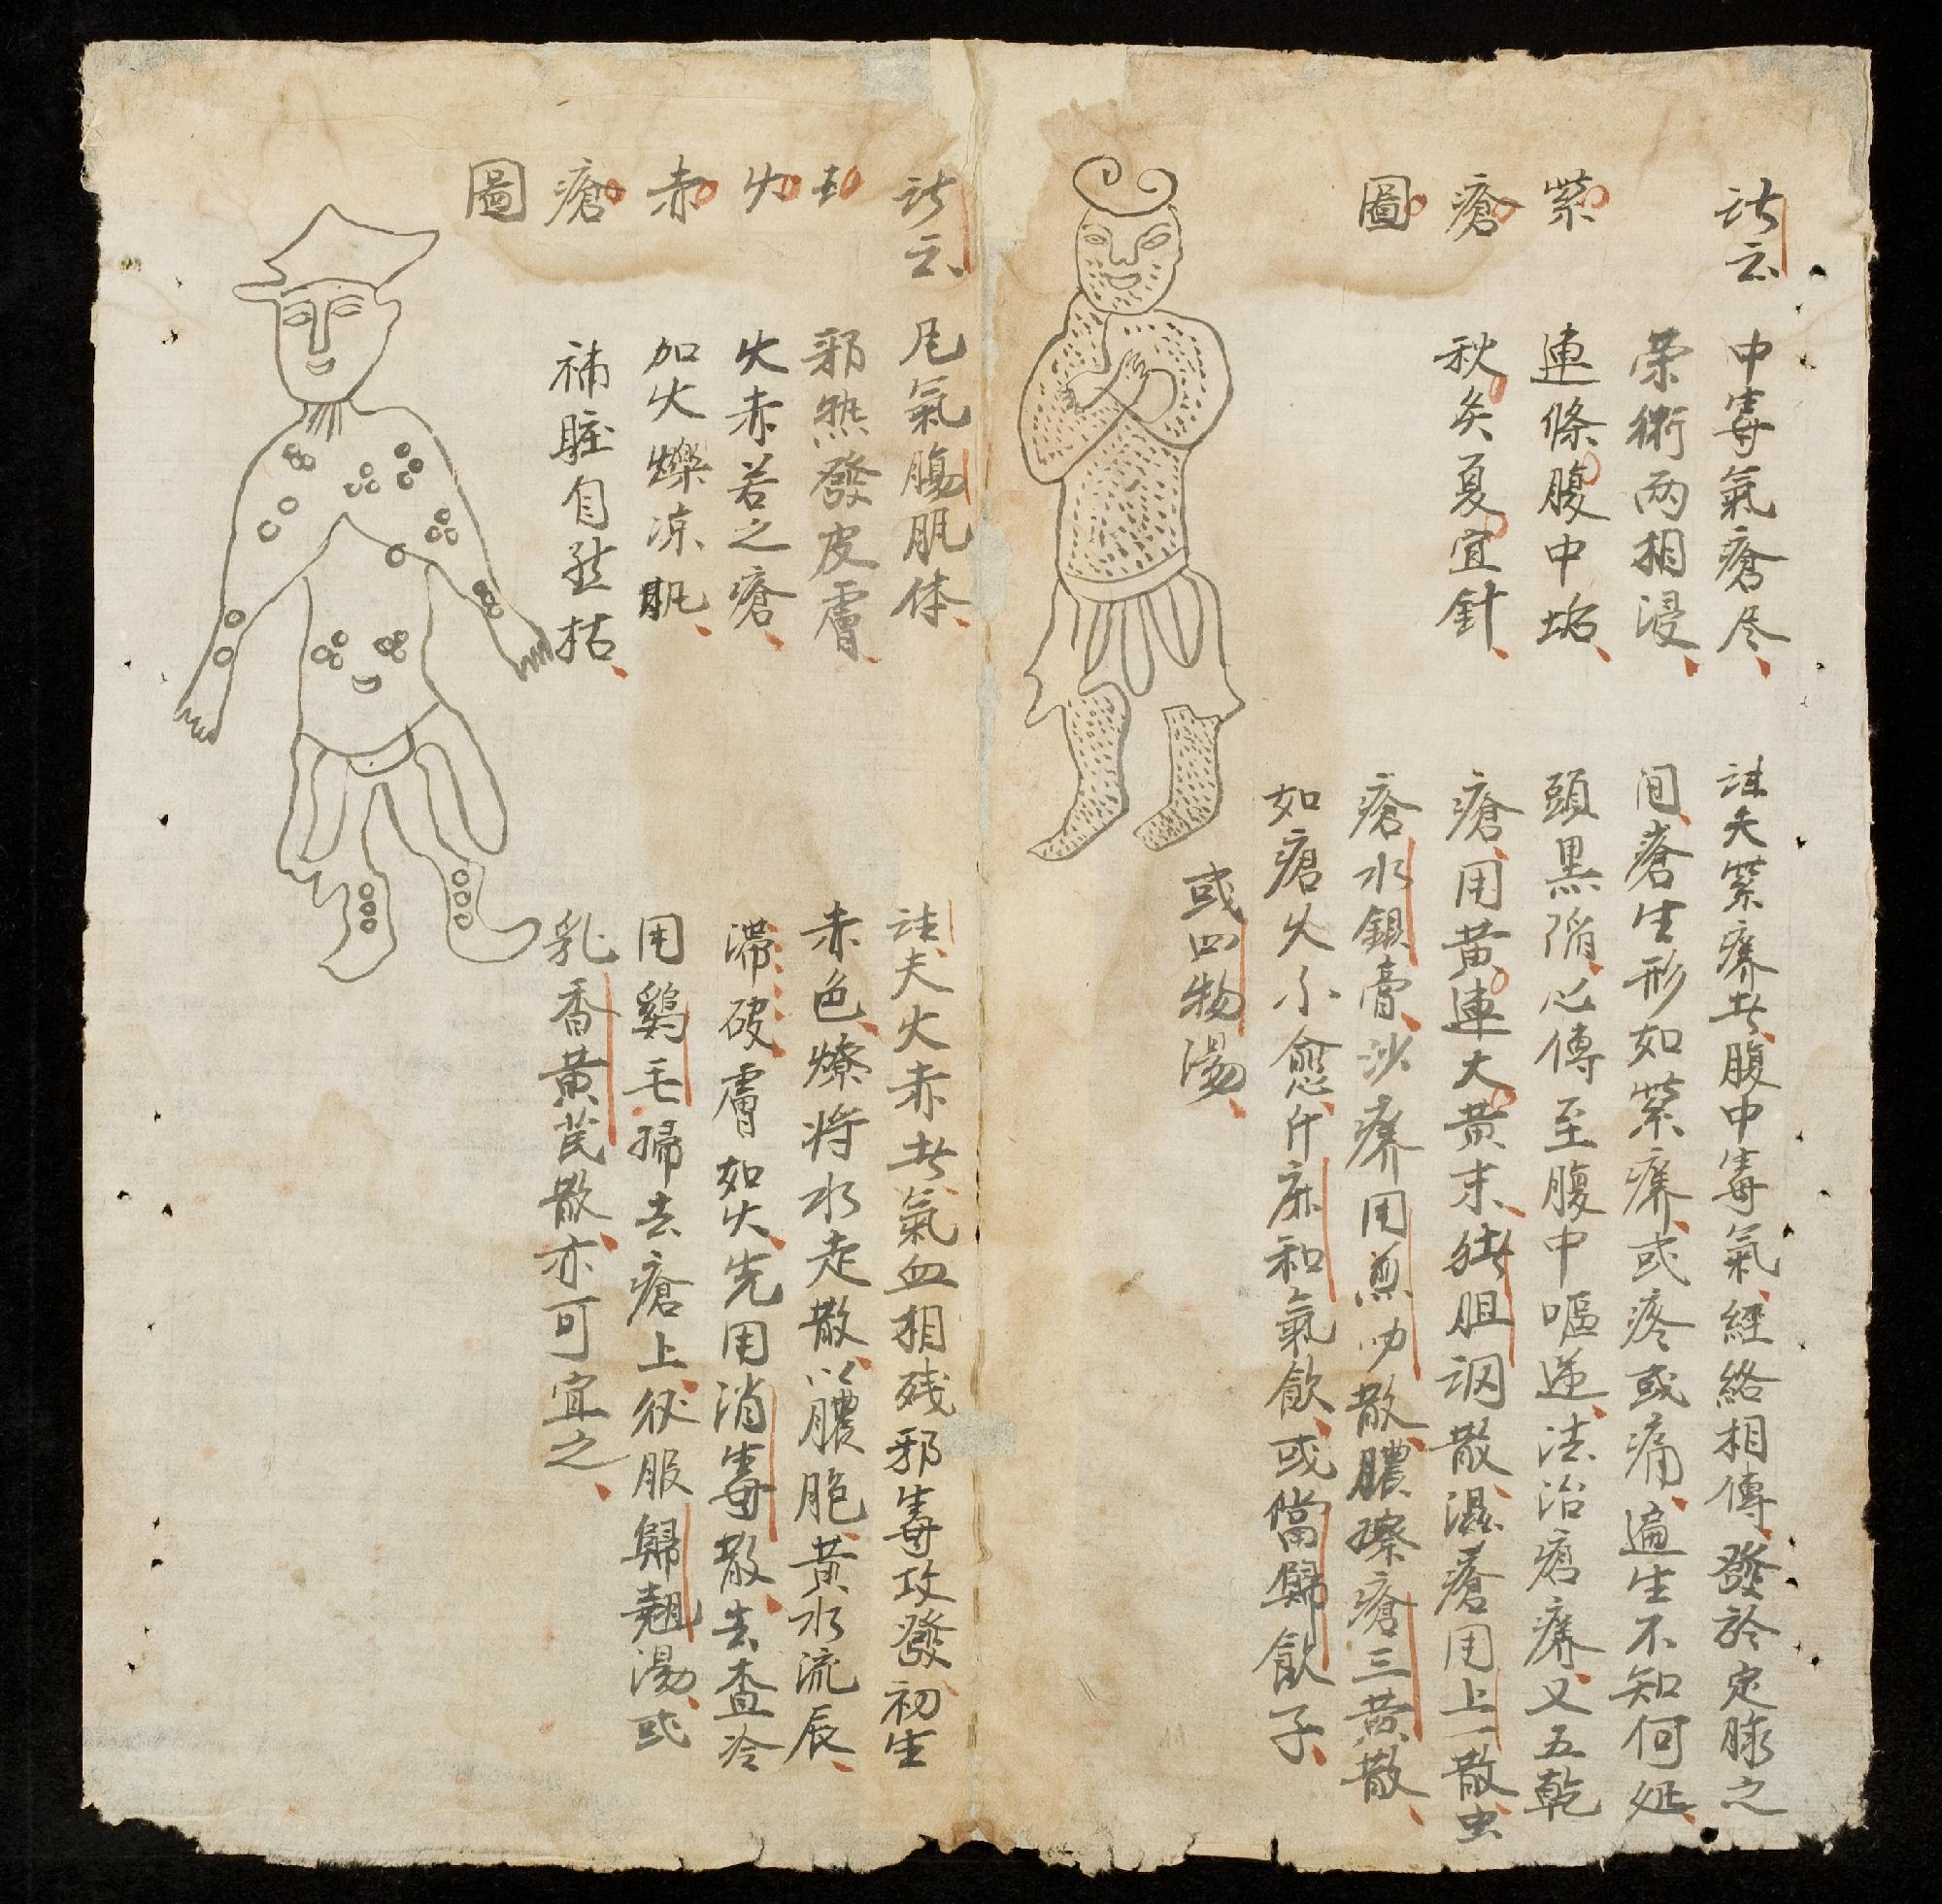 紫
瘡
圖
訣云
中毒氣瘡尽
荣術两相浸
連條腹中垢
秋灸夏宜針
註夫紫癢者腹中毒氣經絡相傳發於定脉之
间瘡生形如紫癢或疼或痛遍生不知何延
頭黑陷心傳至腹中嘔逆法治瘡癢又五乾
瘡用黄連大黄末猪胆调散濕瘡用上一散虫
瘡水銀膏沙癢用散膿擦瘡三黄散
如瘡久不愈升麻和氣飲或當歸飲子
或四物湯
火
赤
瘡
圖
訣云
凡氣腸肌体
邪热發皮膚
火赤若之瘡
加火爍凉肌
補脏自然枯
註夫火赤者氣血相残邪毒攻發初生
赤色燎将水走散以膿胞黄水流辰
滞破膚如火先用消毒散去查冷
用鷄毛掃去瘡上後服歸翹湯或
乳香黄芪散亦可宜之